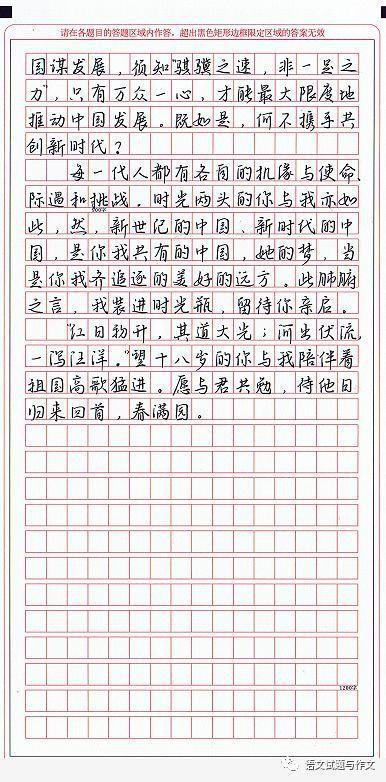 请在各题目的答题区域内作答，超出黑色矩形边框限定区域的答案无效
国谋发展，须知“骐骥之速，非一足之
力”，只有万众一心，才能最大限度地
推动中国发展。既如是，何不携手共
创新时代？
每一代人都有各自的机缘与使命、
际遇和挑战，时光两头的你与我亦如
此，然，新世纪的中国、新时代的中
国，是你我共有的中国，她的梦，当
是你我齐追逐的美好的远方。此肺腑
之言，我装进时光瓶，留待你亲启。
“红日初升，其道大光；河出伏流，
一泻汪洋。”望十八岁的你与我陪伴着
祖国高歌猛进。愿与君共勉，待他日
归来回首，春满园。
1200字
语文试题与作文